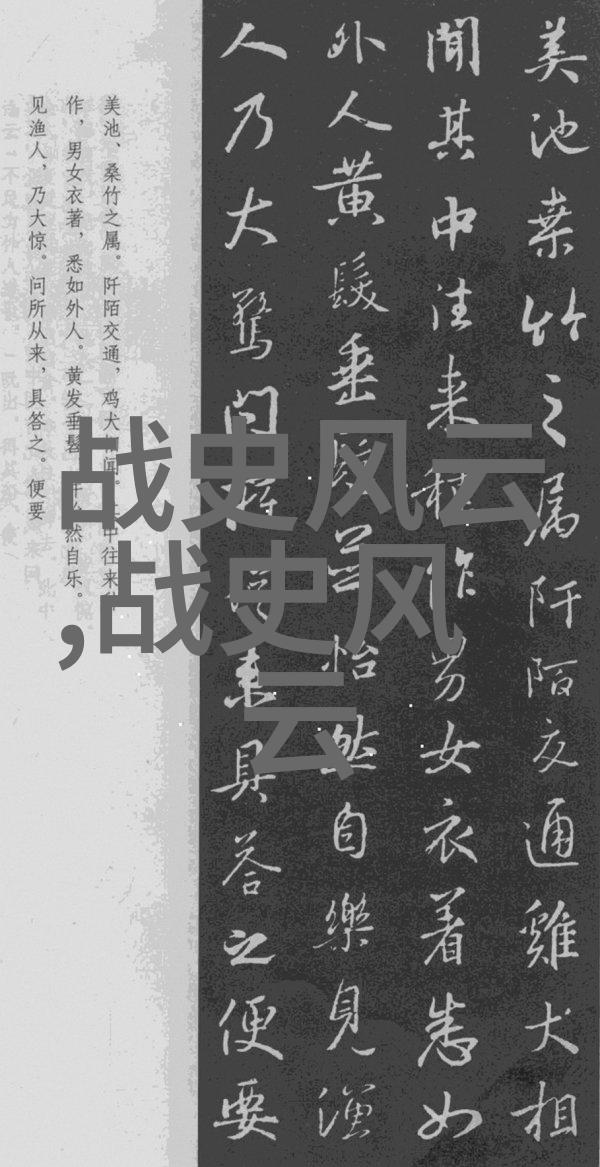 美池桑竹之属阡陌交通雞犬相
聞其中往来種作男女衣着悉如
外人黄髮垂髫並怡然自樂見漁
人乃大驚問所從来具答之便要
美池、桑竹之属。阡陌交通，鸡犬相闻。其中往来种
作，男女衣著，悉如外人。黄发垂髫，并怡然自乐。
见渔人，乃大惊。问所从来，具答之。便要
战史风云
,战史风
云